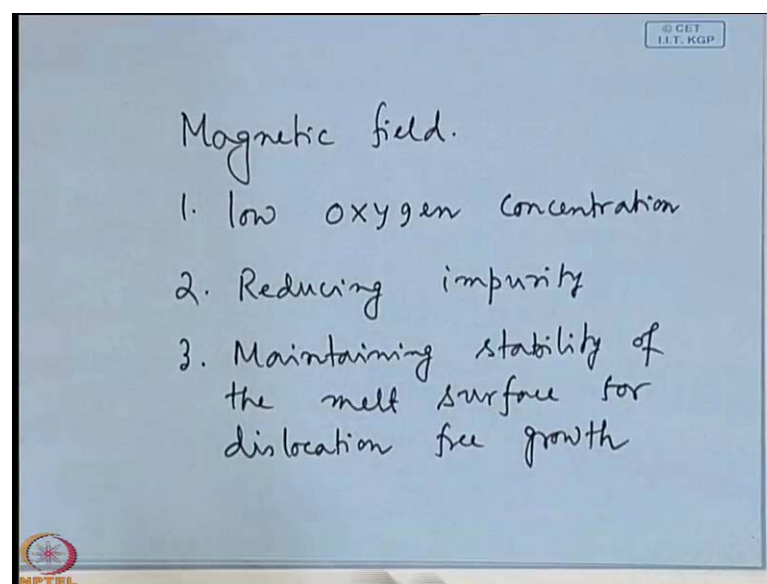 © CET
I.I.T. KGP
Magnetic field.
1. low oxygen concentration
2. Reducing impurity
3. Maintaining stability of
the melt surface for
dislocation free growth
NPTEL